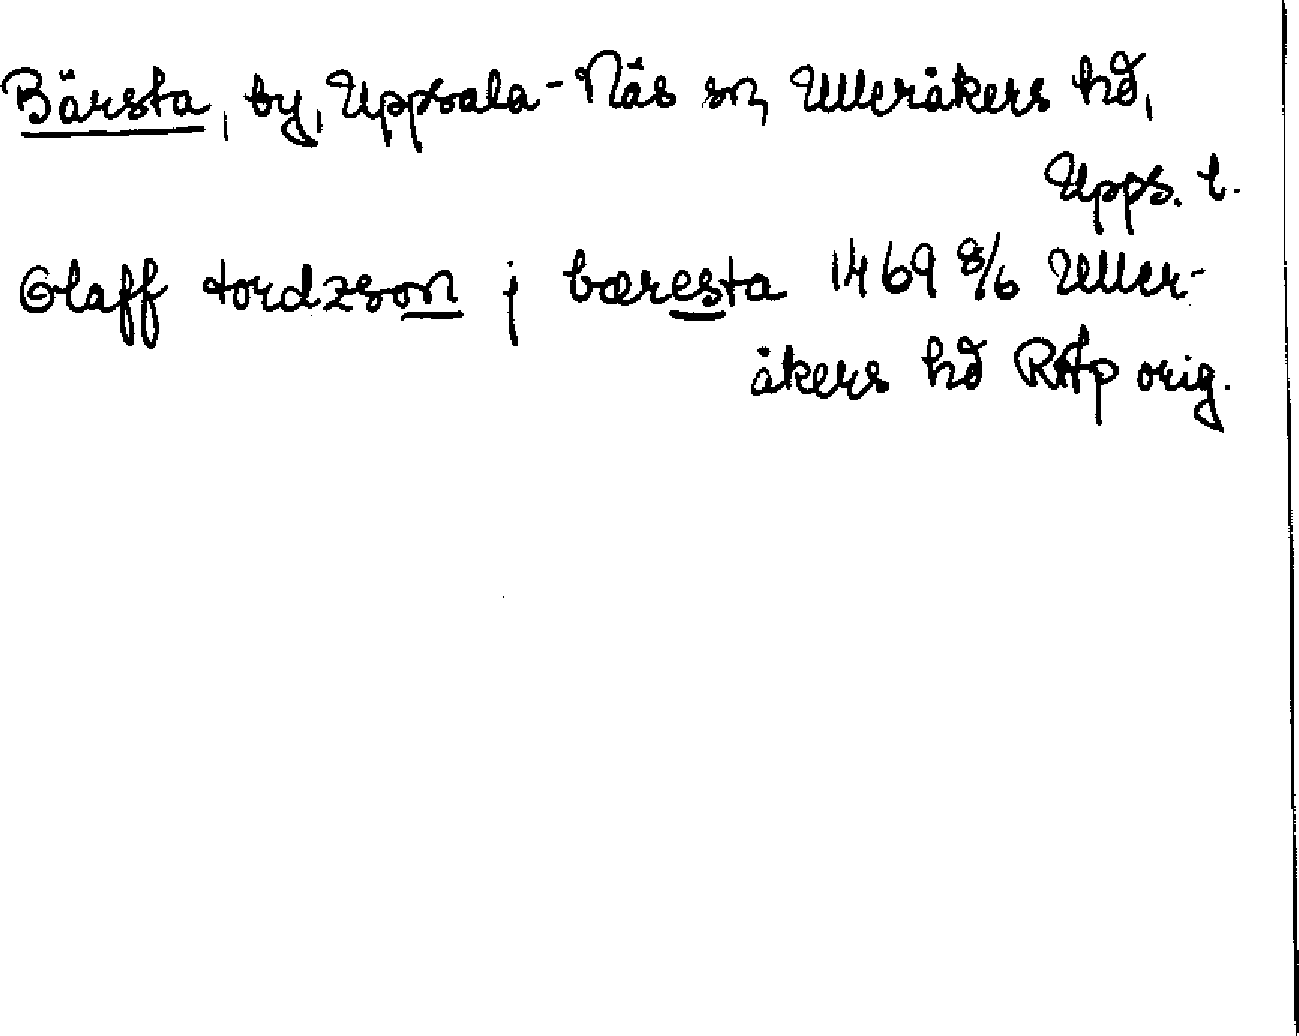 Bärsta, by, Uppsala-Näs sn, Ulleråkers hd,
Upps. l.
Olaff tordzson j bæresta 1469 8/6 Uller-
åkers hd RAp orig.